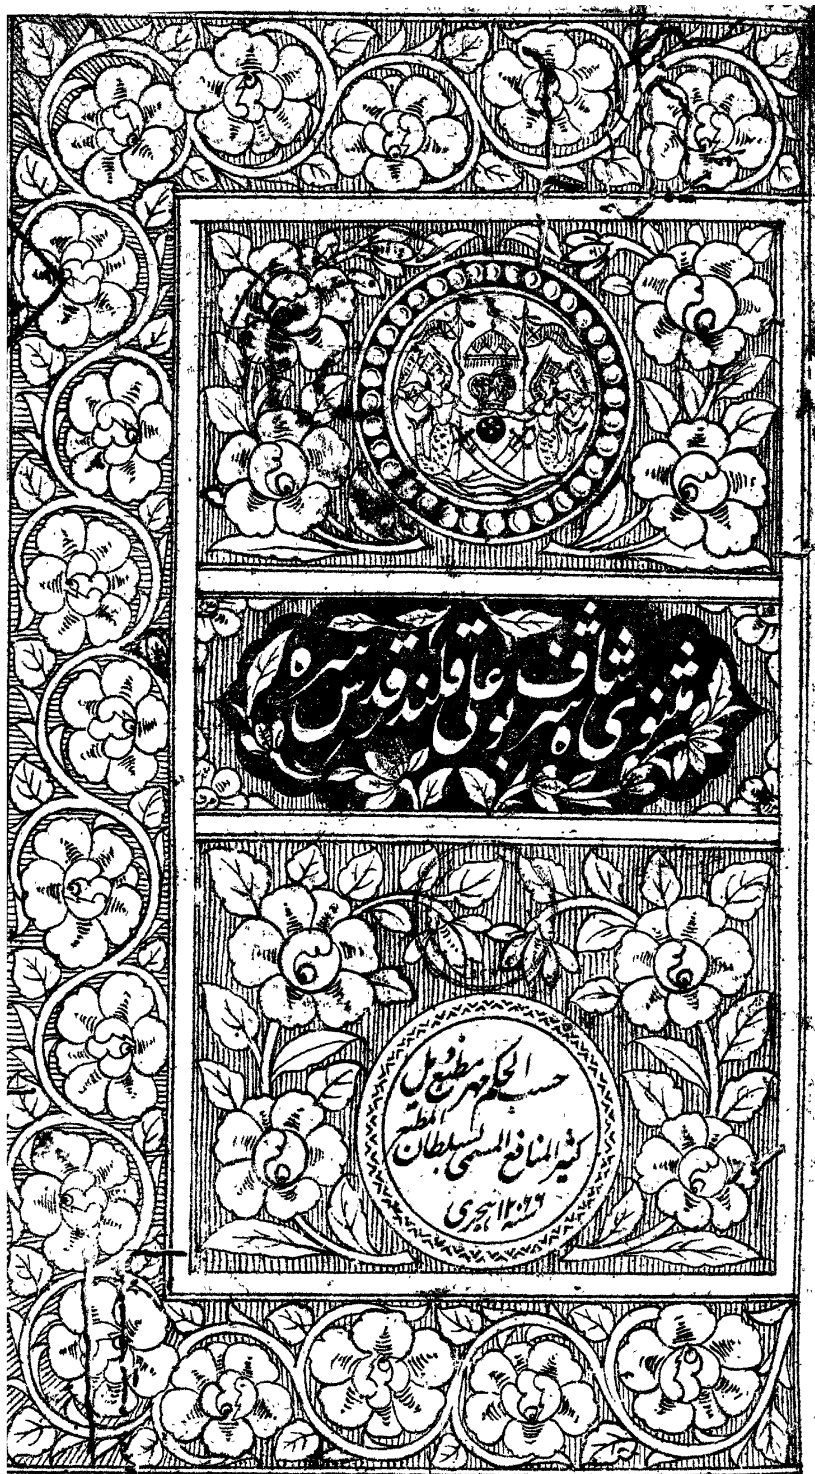 مثنوی شاه شرف بوعلی قلندر قدس سره
حسب الحکم مهر مطبع
کثیر المنافع المسمی بسلطان المطابع
سنه ۱۲۶۶ هجری